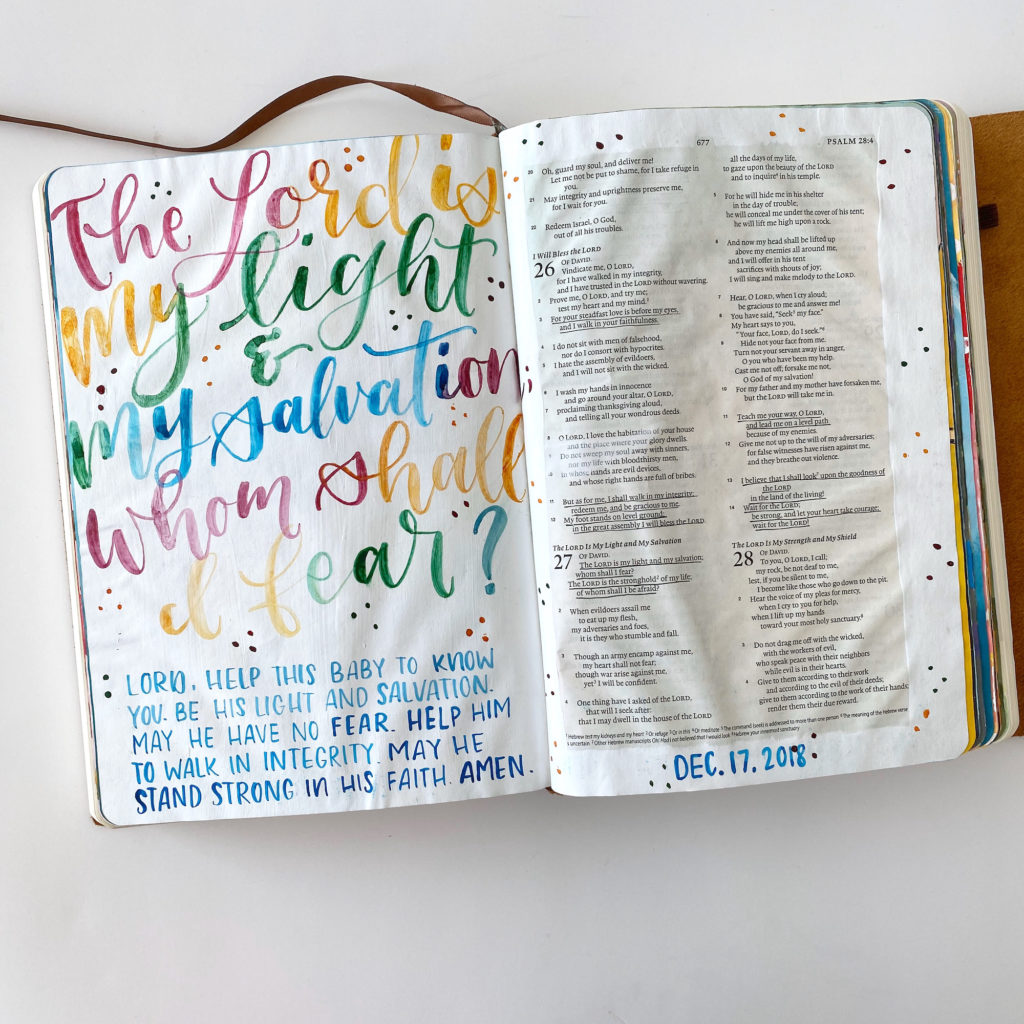 The Lord is
my light
&
my salvation,
whom shall
I fear?
LORD, HELP THIS BABY TO KNOW
YOU. BE HIS LIGHT AND SALVATION.
MAY HE HAVE NO FEAR. HELP HIM
TO WALK IN INTEGRITY. MAY HE
STAND STRONG IN HIS FAITH. AMEN.
677
PSALM 28:4
20 Oh, guard my soul, and deliver me!
Let me not be put to shame, for I take refuge in
you.
21 May integrity and uprightness preserve me,
for I wait for you.
22 Redeem Israel, O God,
out of all his troubles.
I Will Bless the LORD
26 OF DAVID.
Vindicate me, O LORD,
for I have walked in my integrity,
and I have trusted in the LORD without wavering.
2 Prove me, O LORD, and try me;
test my heart and my mind.¹
3 For your steadfast love is before my eyes,
and I walk in your faithfulness.
4 I do not sit with men of falsehood,
nor do I consort with hypocrites.
5 I hate the assembly of evildoers,
and I will not sit with the wicked.
6 I wash my hands in innocence
and go around your altar, O LORD,
7 proclaiming thanksgiving aloud,
and telling all your wondrous deeds.
8 O LORD, I love the habitation of your house
and the place where your glory dwells.
9 Do not sweep my soul away with sinners,
nor my life with bloodthirsty men,
10 in whose hands are evil devices,
and whose right hands are full of bribes.
11 But as for me, I shall walk in my integrity;
redeem me, and be gracious to me.
12 My foot stands on level ground;
in the great assembly I will bless the LORD.
The LORD Is My Light and My Salvation
27 OF DAVID.
The LORD is my light and my salvation;
whom shall I fear?
The LORD is the stronghold² of my life;
of whom shall I be afraid?
2 When evildoers assail me
to eat up my flesh,
my adversaries and foes,
it is they who stumble and fall.
3 Though an army encamp against me,
my heart shall not fear;
though war arise against me,
yet³ I will be confident.
4 One thing have I asked of the LORD,
that will I seek after:
that I may dwell in the house of the LORD
all the days of my life,
to gaze upon the beauty of the LORD
and to inquire⁴ in his temple.
5 For he will hide me in his shelter
in the day of trouble;
he will conceal me under the cover of his tent;
he will lift me high upon a rock.
6 And now my head shall be lifted up
above my enemies all around me,
and I will offer in his tent
sacrifices with shouts of joy;
I will sing and make melody to the LORD.
7 Hear, O LORD, when I cry aloud;
be gracious to me and answer me!
8 You have said, "Seek⁵ my face."
My heart says to you,
"Your face, LORD, do I seek."⁶
9 Hide not your face from me.
Turn not your servant away in anger,
O you who have been my help.
Cast me not off; forsake me not,
O God of my salvation!
10 For my father and my mother have forsaken me,
but the LORD will take me in.
11 Teach me your way, O LORD,
and lead me on a level path
because of my enemies.
12 Give me not up to the will of my adversaries;
for false witnesses have risen against me,
and they breathe out violence.
13 I believe that I shall look⁷ upon the goodness of
the LORD
in the land of the living!
14 Wait for the LORD;
be strong, and let your heart take courage;
wait for the LORD!
The LORD Is My Strength and My Shield
28 OF DAVID.
To you, O LORD, I call;
my rock, be not deaf to me,
lest, if you be silent to me,
I become like those who go down to the pit.
2 Hear the voice of my pleas for mercy,
when I cry to you for help,
when I lift up my hands
toward your most holy sanctuary.⁸
3 Do not drag me off with the wicked,
with the workers of evil,
who speak peace with their neighbors
while evil is in their hearts.
4 Give to them according to their work
and according to the evil of their deeds;
give to them according to the work of their hands;
render them their due reward.
¹ Hebrew test my kidneys and my heart ² Or refuge ³ Or in this ⁴ Or meditate ⁵ The command (seek) is addressed to more than one person ⁶ The meaning of the Hebrew verse
is uncertain ⁷ Other Hebrew manuscripts Oh! Had I not believed that I would look ⁸ Hebrew your innermost sanctuary
DEC. 17. 2018